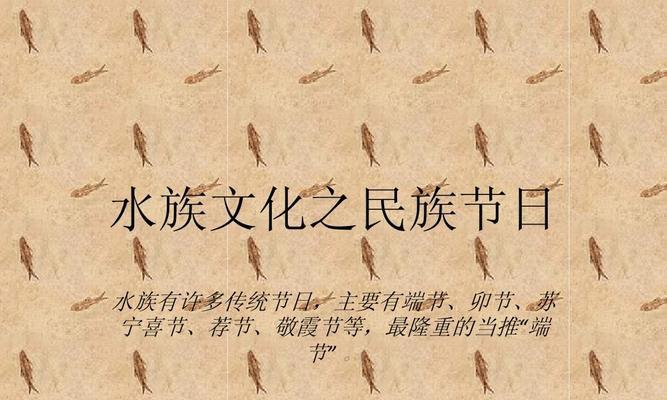 水族文化之民族节日
水族有许多传统节日，主要有端节、卯节、苏
宁喜节、荐节、敬霞节等，最隆重的当推“端
节”。